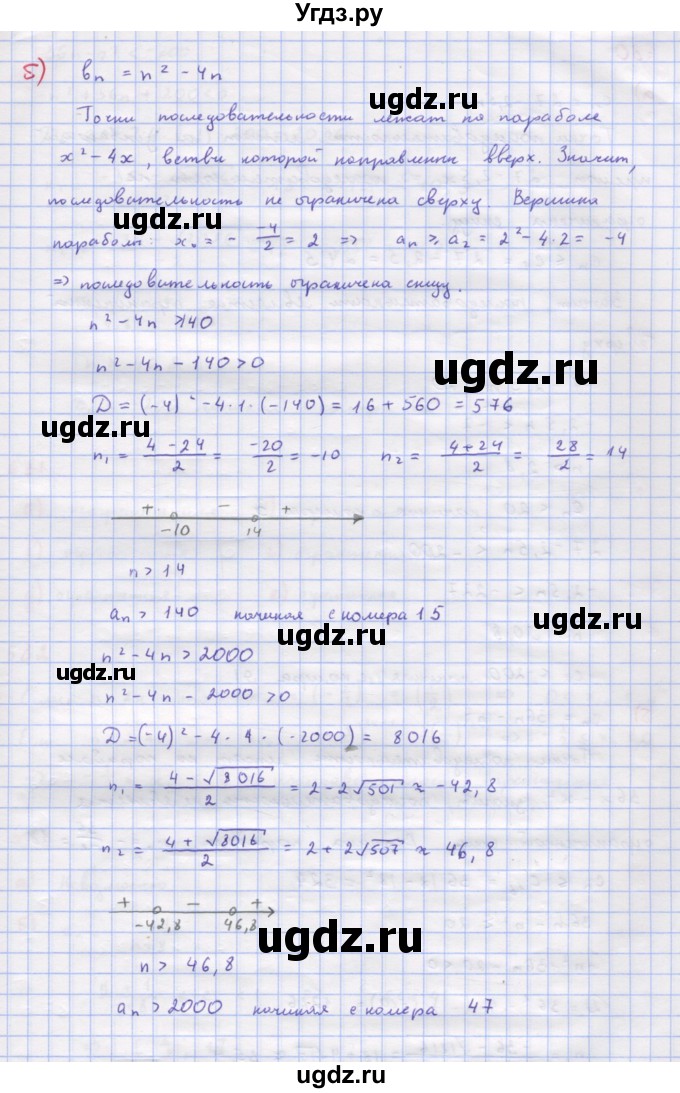 Угдз.ру
5) bₙ = n² - 4n
ugdz.ru
Точки последовательности лежат на параболе
x² - 4x, ветви которой направлены вверх. Значит,
последовательность не ограничена сверху. Вершина
ugdz.ru
параболы: x₀ = - -4/2 = 2 => aₙ ⩾ a₂ = 2² - 4·2 = -4
=> последовательность ограничена снизу.
n² - 4n > 140
n² - 4n - 140 > 0
ugdz.ru
D = (-4)² - 4·1·(-140) = 16 + 560 = 576
ugdz.ru
n₁ = 4 - 24/2 = -20/2 = -10 n₂ = 4 + 24/2 = 28/2 = 14
+ - +
-10 14
n > 14
aₙ > 140 начиная с номера 15
ugdz.ru
n² - 4n > 2000
ugdz.ru
n² - 4n - 2000 > 0
D = (-4)² - 4·1·(-2000) = 8016
ugdz.ru
n₁ = 4 - √8016/2 = 2 - 2√501 ≈ -42,8
n₂ = 4 + √8016/2 = 2 + 2√507 ≈ 46,8
+ - +
-42,8 46,8
ugdz.ru
n > 46,8
aₙ > 2000 начиная с номера 47
ugdz.ru